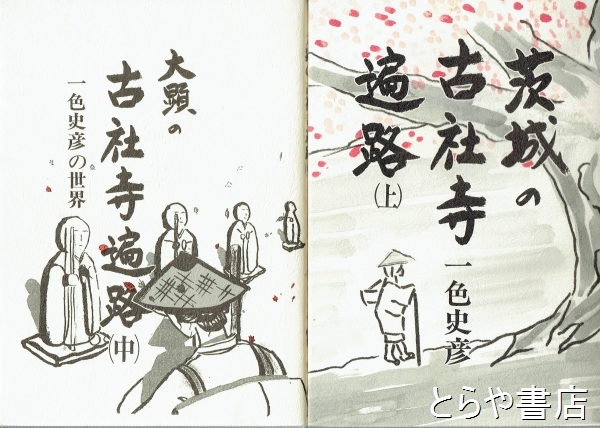 茨城の
古社寺
遍路
(上)
一色史彦
大顕の
古社寺遍路
(中)
一色史彦の世界
とらや書店